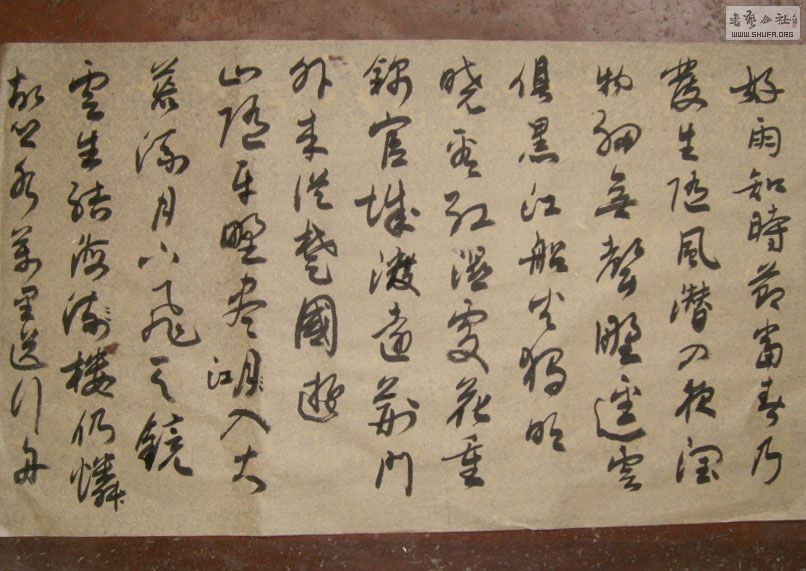 好雨知時節當春乃
發生随風潜入夜润
物細無聲野逕雲
俱黑江船火獨明
晓看红濕處花重
錦官城渡遠荆門
外来従楚國遊
山随平野尽江入大
荒流月下飛天鏡
雲生结海流楼仍憐
故乡水萬里送行舟
书藝公社
WWW.SHUFA.ORG